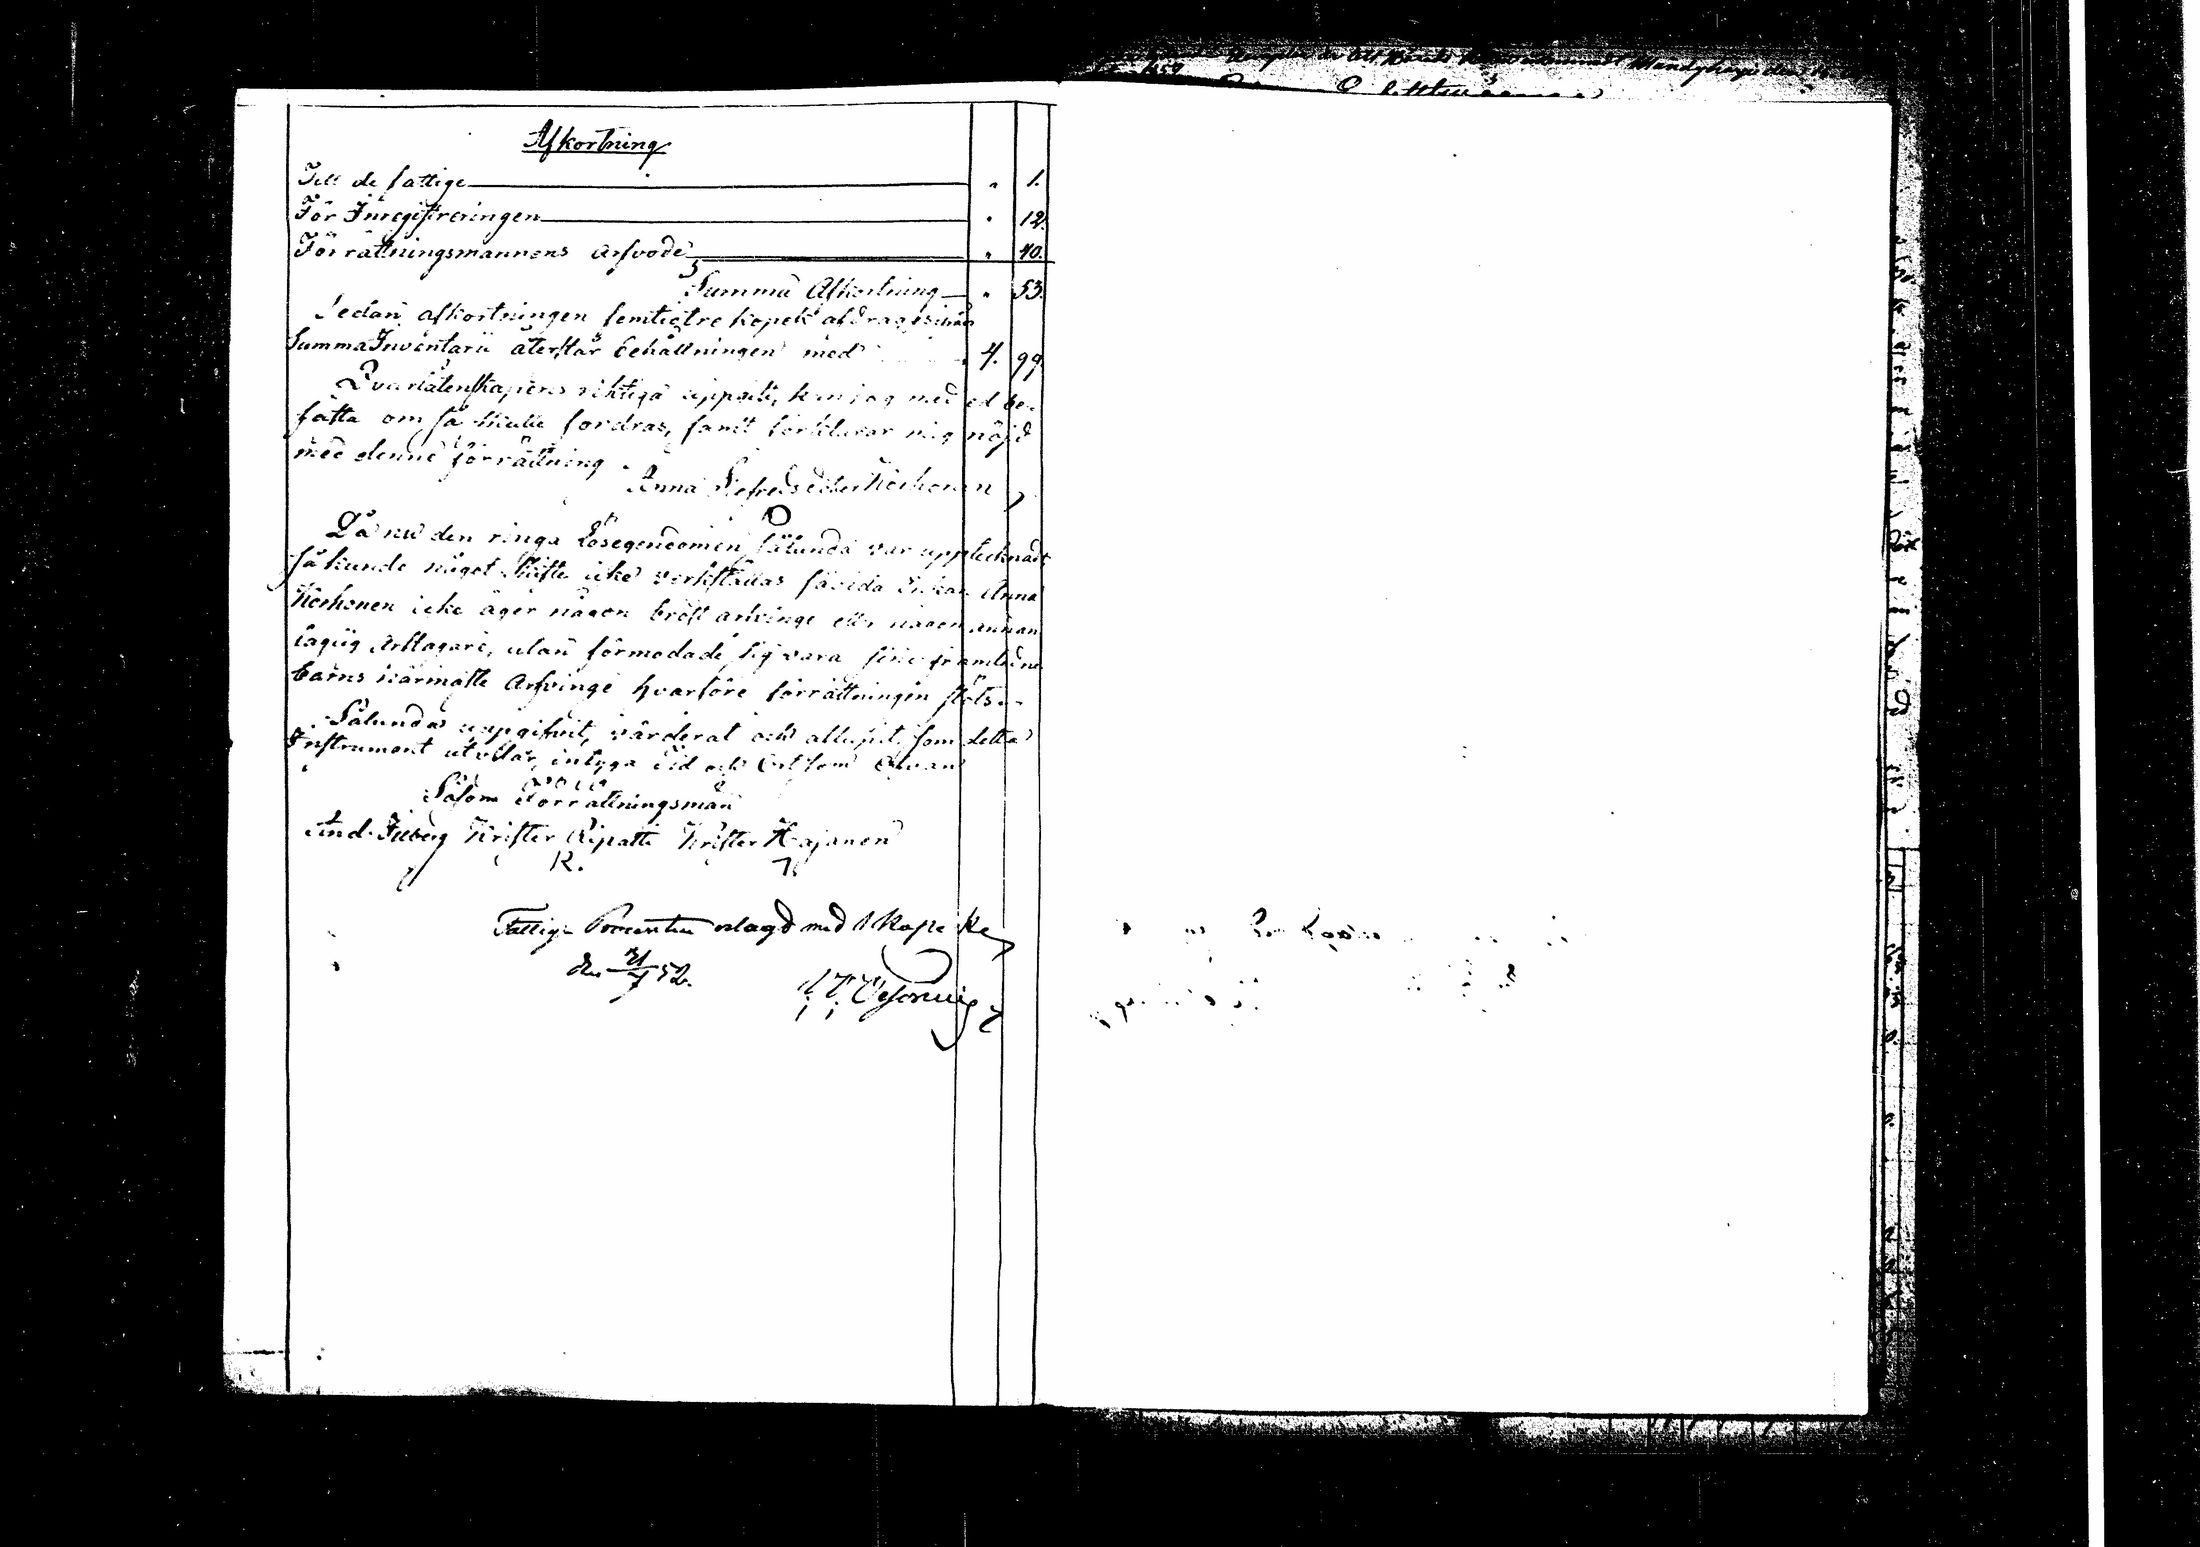 Afkortning
Till de fattige " 1.
För Inregistreringen " 12.
Förrättningsmannens Arfvode " 40.
Summa Afkortning " 53.
Sedan afkortningen femtiotre kopek afdrages ifrån
Summa Inventarii återstår behållningen med 4. 99.
Qvarlåtenskapens riktiga uppgift, kan jag med ed be-
fästa om så skulle fordras, samt förklarar mig nöjd
med denne förrättning
Anna Korhonen
Då nu den ringa Lösegendomen sålunda var upptecknadt
så kunde något skifte icke verkställas såvida Enkan Anna
Korhonen icke äger någon bröst arfvinge eller någon annan
laglig Arftagare, utan förmodade sig vara sine framledne
barns närmaste Arfvinge hvarföre förrättningen slöts.
Sålunda uppgifvit, värderat och aflupit, som detta
Instrument utvisar, intyga Tid och Ort som Ofvan
Såsom Förrättningsmän
And. Krister Ripatti Krister Hajanen
R.
Fattig Procenten erlagd med 1 Kopek
den 21/7 52.